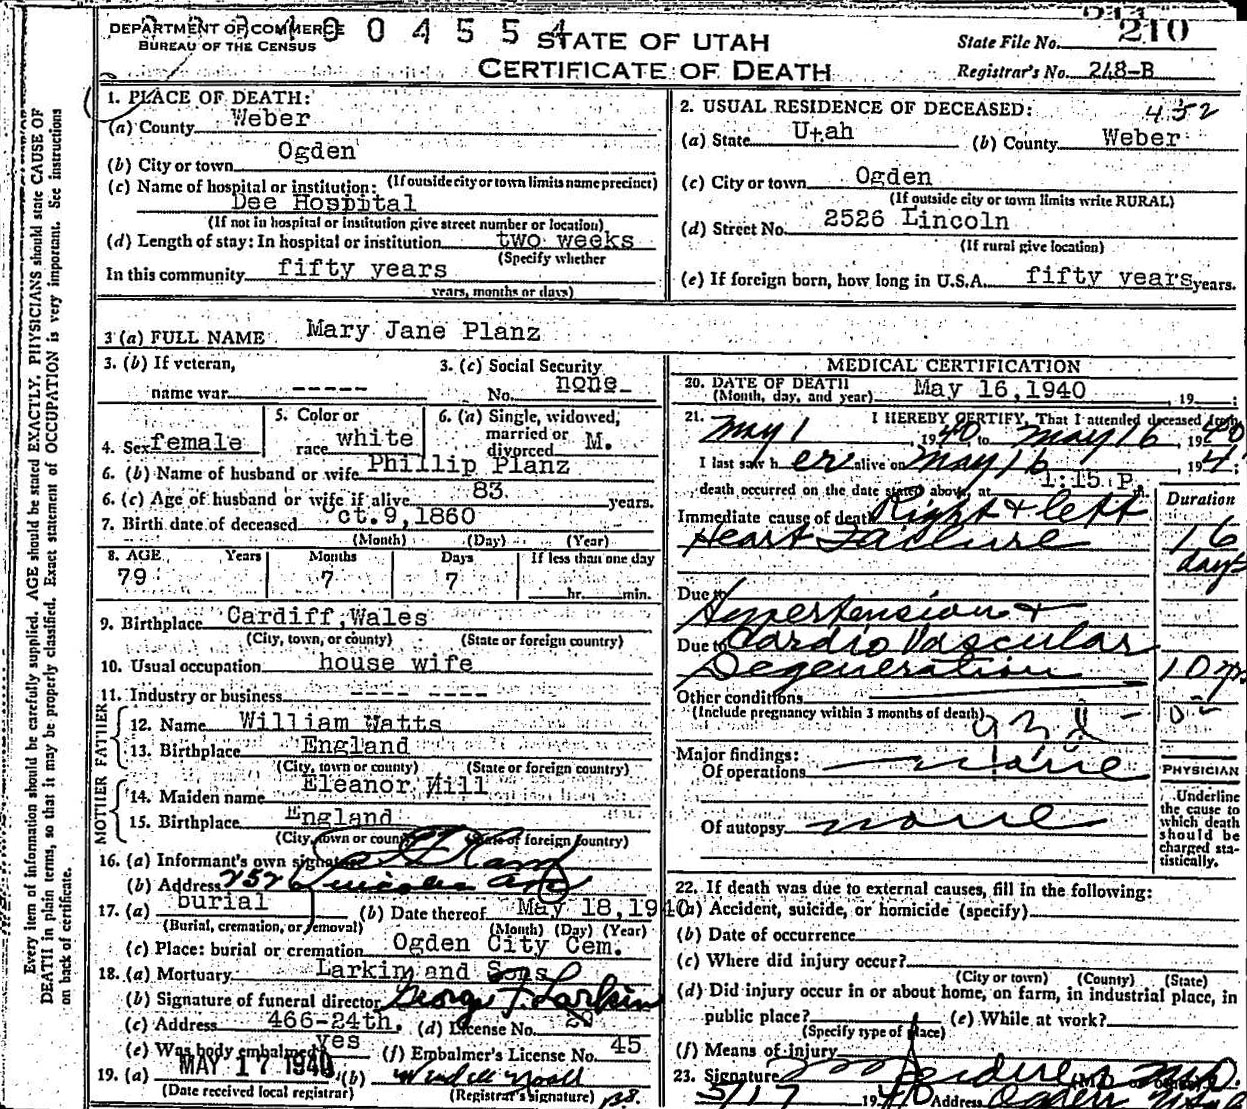 DEPARTMENT OF COMMERCE
BUREAU OF THE CENSUS
0 0 4 5 5 4
STATE OF UTAH
CERTIFICATE OF DEATH
State File No. 210
Registrar's No. 248-B
Every item of information should be carefully supplied. AGE should be stated EXACTLY. PHYSICIANS should state CAUSE OF
DEATH in plain terms, so that it may be properly classified. Exact statement of OCCUPATION is very important. See Instructions
on back of certificate.
1. PLACE OF DEATH:
(a) County Weber
(b) City or town Ogden
(If outside city or town limits name precinct)
(c) Name of hospital or institution:
Dee Hospital
(If not in hospital or institution give street number or location)
(d) Length of stay: In hospital or institution two weeks
(Specify whether
In this community fifty years
years, months or days)
2. USUAL RESIDENCE OF DECEASED: 452
(a) State Utah (b) County Weber
(c) City or town Ogden
(If outside city or town limits write RURAL)
(d) Street No. 2526 Lincoln
(If rural give location)
(e) If foreign born, how long in U.S.A. fifty years years.
3 (a) FULL NAME Mary Jane Planz
3. (b) If veteran,
name war -----
3. (c) Social Security
No. none
4. Sex female
5. Color or
race white
6. (a) Single, widowed,
married or
divorced M.
6. (b) Name of husband or wife Phillip Planz
6. (c) Age of husband or wife if alive 83 years.
7. Birth date of deceased ct. 9, 1860
(Month) (Day) (Year)
8. AGE Years Months Days If less than one day
79 7 7 hr. min.
9. Birthplace Cardiff, Wales
(City, town, or county) (State or foreign country)
10. Usual occupation house wife
11. Industry or business ---- ----
FATHER
12. Name William Watts
13. Birthplace England
(City, town or county) (State or foreign country)
MOTHER
14. Maiden name Eleanor Hill
15. Birthplace England
(City, town or county) (State or foreign country)
16. (a) Informant's own signature
(b) Address 2526 Lincoln Ave
17. (a) burial (b) Date thereof May 18, 1940
(Burial, cremation, or removal) (Month) (Day) (Year)
(c) Place: burial or cremation Ogden City Cem.
18. (a) Mortuary Larkin and Sons
(b) Signature of funeral director George T. Larkin
(c) Address 466-24th. (d) License No. 20
(e) Was body embalmed yes (f) Embalmer's License No. 45
19. (a) MAY 17 1940 (b)
(Date received local registrar) (Registrar's signature)
MEDICAL CERTIFICATION
20. DATE OF DEATH
(Month, day, and year) May 16, 1940 , 19 ;
21. I HEREBY CERTIFY, That I attended deceased from
May 1 , 1940 to May 16 , 1940
I last saw her alive on May 16 , 194 ;
death occurred on the date stated above, at 1:15 P. m.
Duration
Immediate cause of death Right & left
Heart Failure 16 days
Due to Hypertension &
Due to Cardio Vascular
Degeneration 10 yrs
Other conditions
(Include pregnancy within 3 months of death)
Major findings:
Of operations none
Of autopsy none
PHYSICIAN
Underline
the cause to
which death
should be
charged sta-
tistically.
22. If death was due to external causes, fill in the following:
(a) Accident, suicide, or homicide (specify)
(b) Date of occurrence
(c) Where did injury occur?
(City or town) (County) (State)
(d) Did injury occur in or about home, on farm, in industrial place, in
public place? (e) While at work?
(Specify type of place)
(f) Means of injury
23. Signature M.D.
5/17 1940 Address Ogden